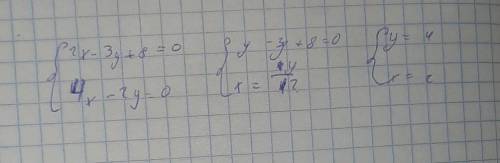 { 2x - 3y + 8 = 0
4x - 2y = 0
{ y - 3y + 8 = 0
x = y/2
{ y = 4
x = 2